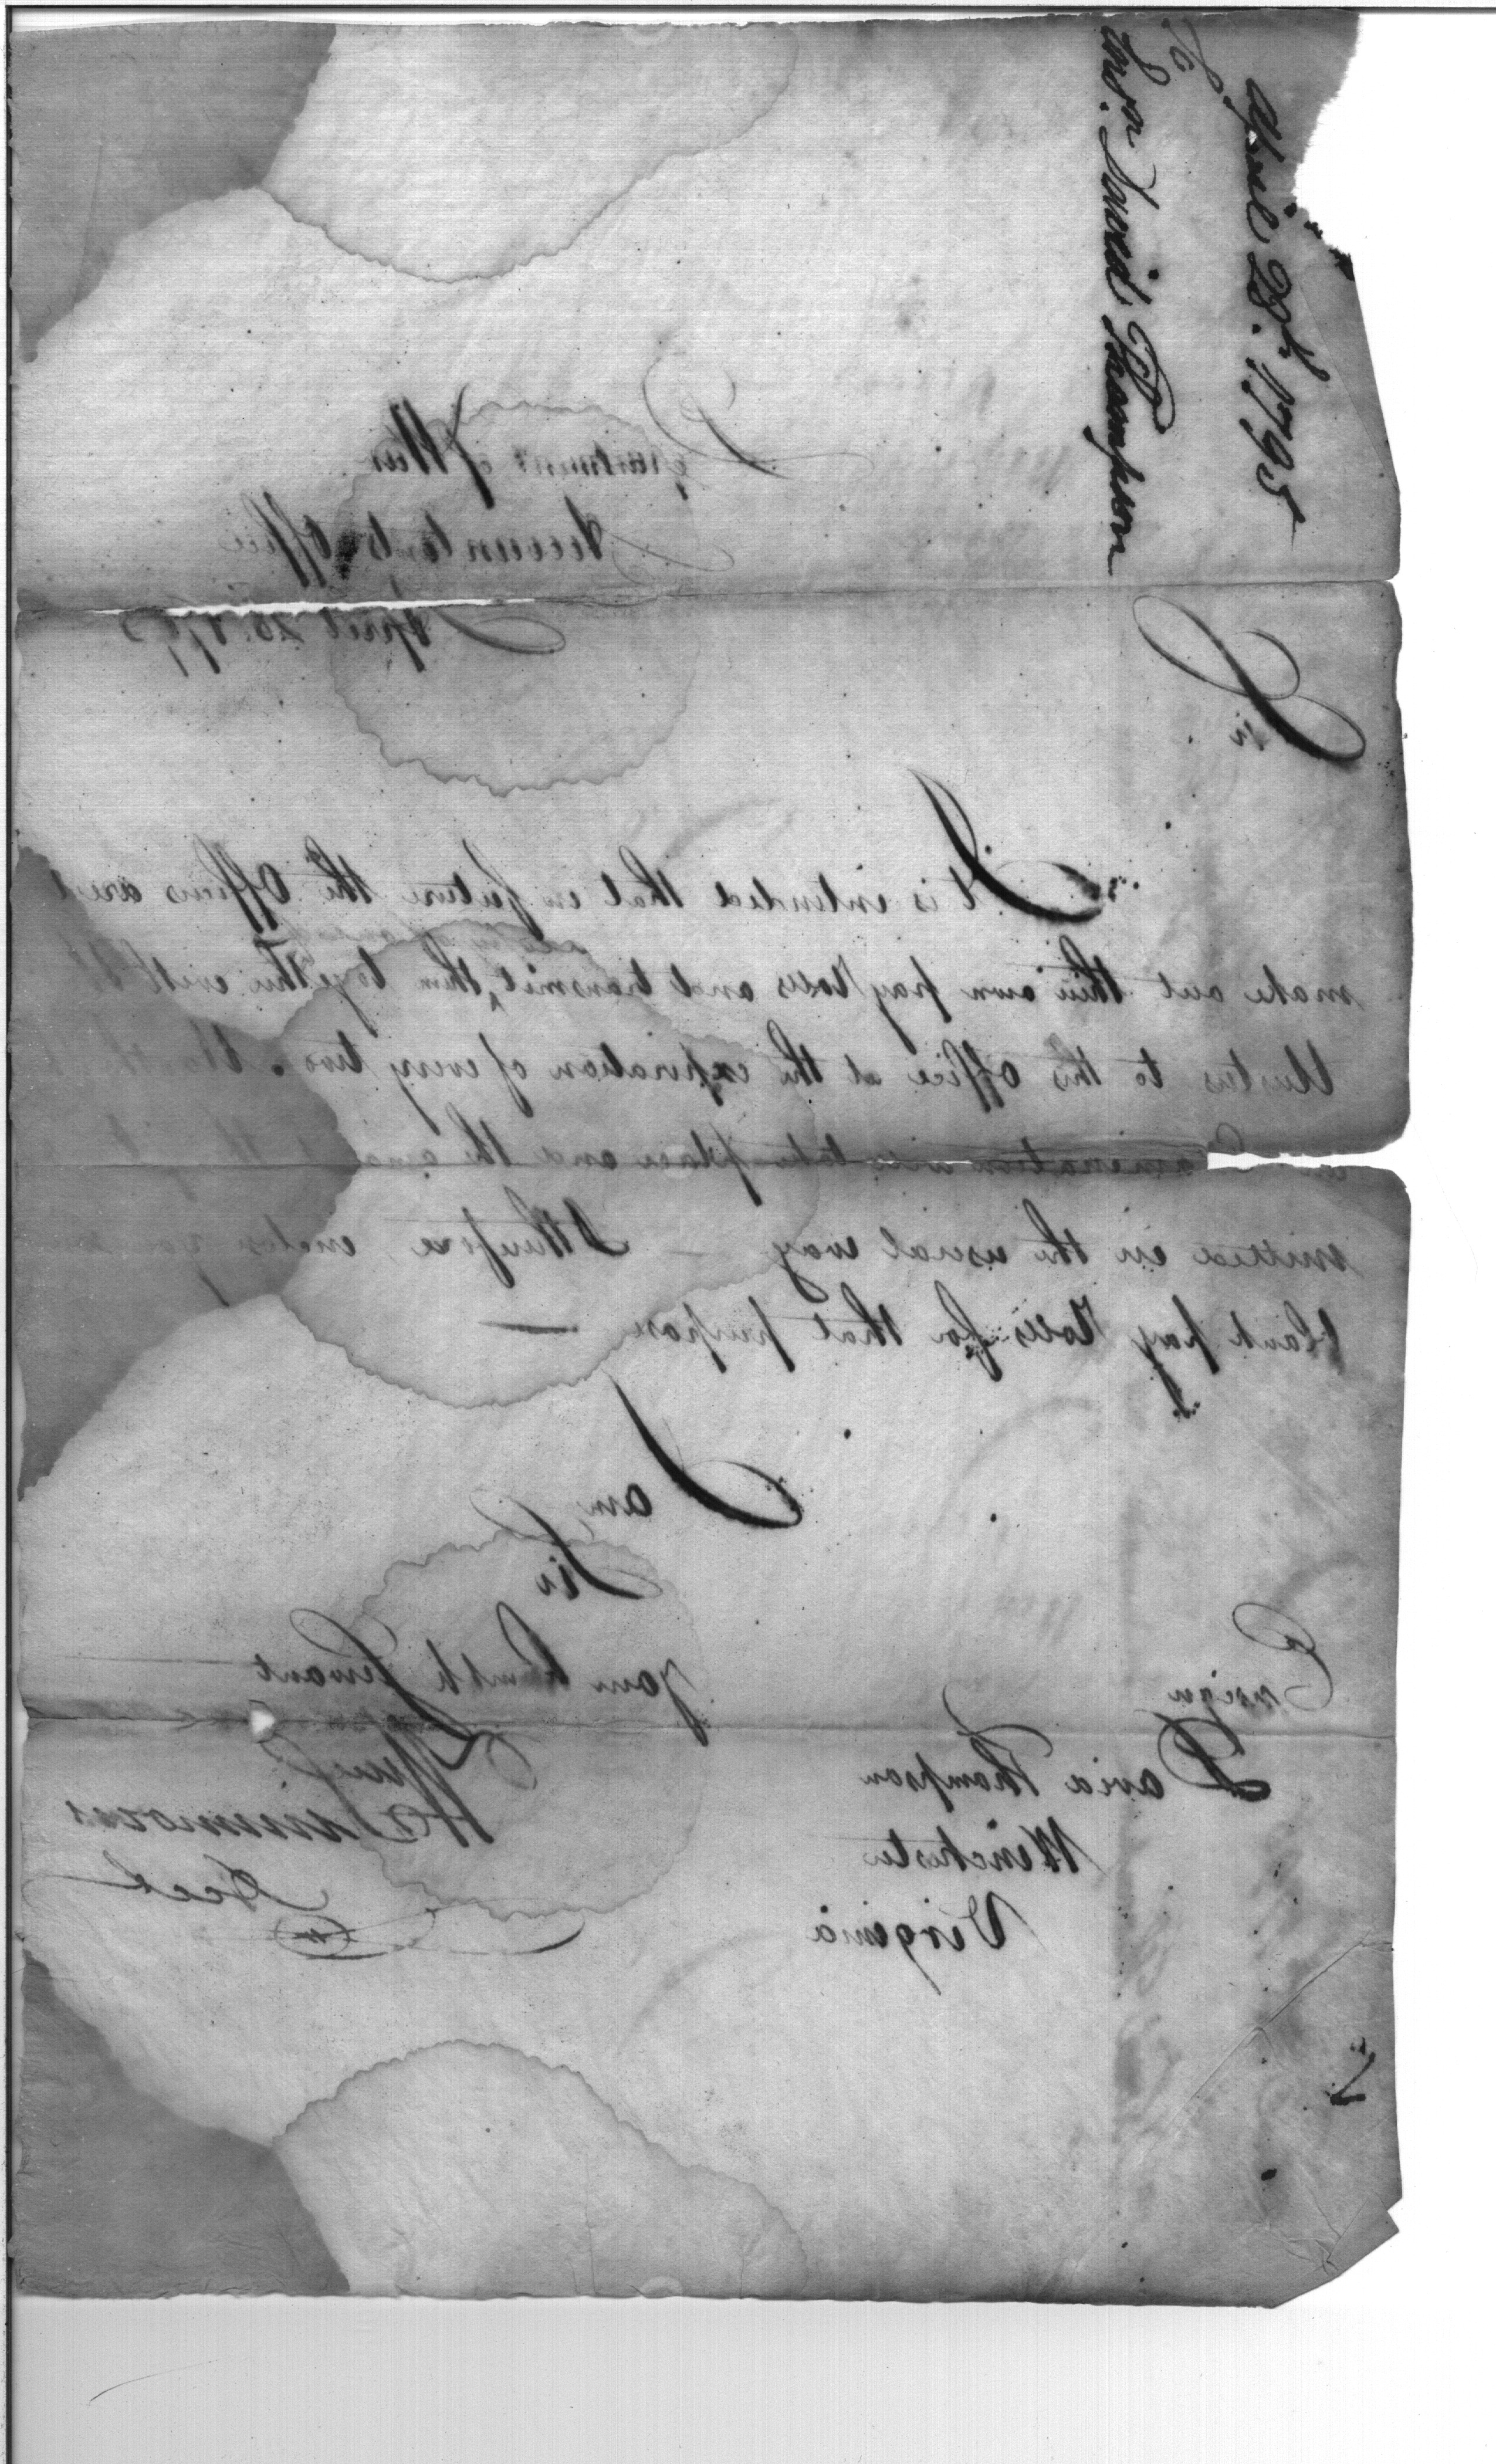 April 28th. 1795
To
Ensign David Thompson
Department of War
Accountants Office
April 28. 1795
Sir
It is intended that in future the Officers and
make out their own pay Rolls and transmit them together with
Musters to this Office at the expiration of every two
examination will take place and the
mitted in the usual way — I therefore enclose
blank pay Rolls for that purpose —
I am
Sir
your humble Servant
Wm Simmons
Acct
Ensign
David Thompson
Winchester
Virginia